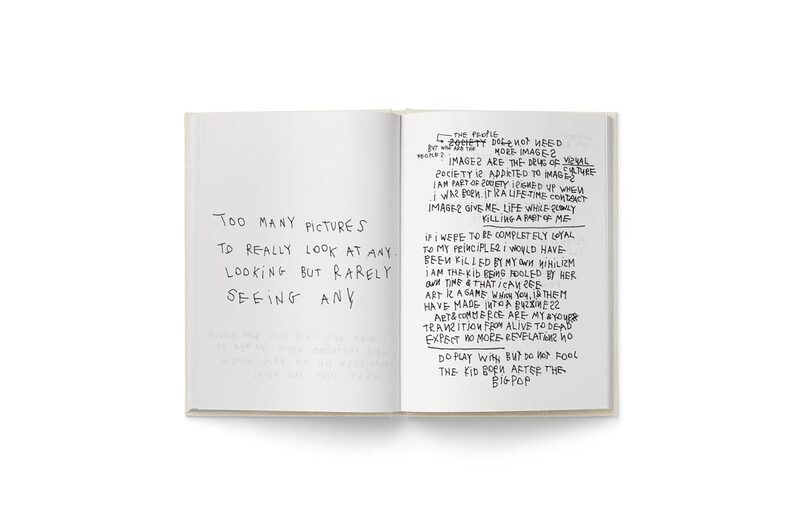 TOO MANY PICTURES
TO REALLY LOOK AT ANY.
LOOKING BUT RARELY
SEEING ANY
THE PEOPLE
SOCIETY DOES NOT NEED
BUT WHO ARE THE
PEOPLE?
MORE IMAGES
IMAGES ARE THE DRUGS OF VISUAL
CULTURE
SOCIETY IS ADDICTED TO IMAGES
I AM PART OF SOCIETY I SIGNED UP WHEN
I WAS BORN. IT IS A LIFE-TIME CONTRACT
IMAGES GIVE ME LIFE WHILE SLOWLY
KILLING A PART OF ME
IF I WERE TO BE COMPLETELY LOYAL
TO MY PRINCIPLES I WOULD HAVE
BEEN KILLED BY MY OWN NIHILISM
I AM THE KID BEING FOOLED BY HER
OWN TIME & THAT I CAN SEE
ART IS A GAME WHICH YOU, I & THEM
HAVE MADE INTO A BUSINESS
ART & COMMERCE ARE MY & YOURS
TRANSITION FROM ALIVE TO DEAD
EXPECT NO MORE REVELATIONS NO
DO PLAY WITH BUT DO NOT FOOL
THE KID BORN AFTER THE
BIG POP